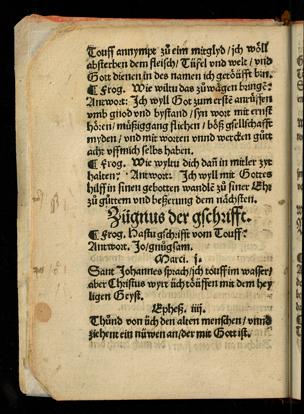 Touff annympt zů eim mitglyd / ich wöll
absterben dem fleisch / Tüfel vnd welt / vnd
Gott dienen in des namen ich getöüfft bin.
¶ Frog. Wie wiltu das zůwägen bringē?
Antwort: Ich wyll Got zum erstē anrüffen
vmb gnod vnd bystand / syn wort mit ernst
hören / müßiggang fliehen / böß gsellschafft
myden / vnd mit worten vnnd wercken gůtt
acht vff mich selbs haben.
¶ Frog. Wie wyltu dich dañ in mitler zyt
halten? Antwort: Ich wyll mit Gottes
hilff in sinen gebotten wandlē zů siner Ehr
zů gůttem vnd beßerung dem nächsten.
Zügnus der gschrifft.
¶ Frog. Hastu gschrifft vom Touff?
Antwort. Jo / gnůgsam.
Marci. j.
Sant Johannes sprach / ich touff im wasser /
aber Christus wyrt üch töüffen mit dem hey
ligen Geyst.
Epheß. iiij.
Thůnd von üch den alten menschen / vnnd
ziehent ein nüwen an / der mit Gott ist.